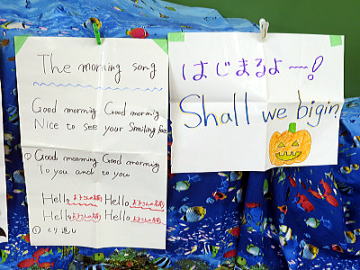 The morning song
Good morning Good morning
Nice to see your smiling face
① Good morning Good morning
To you and to you
Hello Hello
Hello Hello
① くり返し
はじまるよ〜!
Shall we bigin